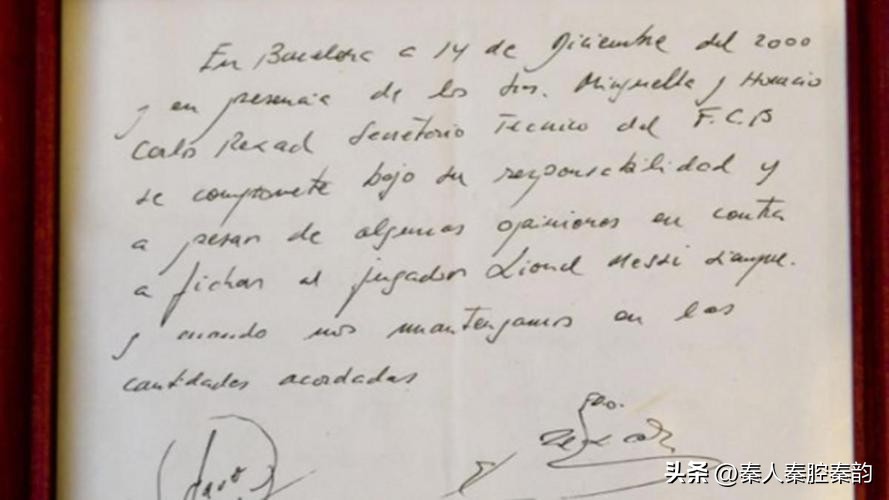 En Barcelona a 14 de Diciembre del 2000
y en presencia de los Sres. Minguella y Horacio
Carlos Rexach Secretario Tecnico del F.C.B
se compromete bajo su responsabilidad y
a pesar de algunas opiniones en contra
a fichar al jugador Lionel Messi siempre
y cuando nos mantengamos en las
cantidades acordadas
Fdo.
头条 @秦人秦腔秦韵